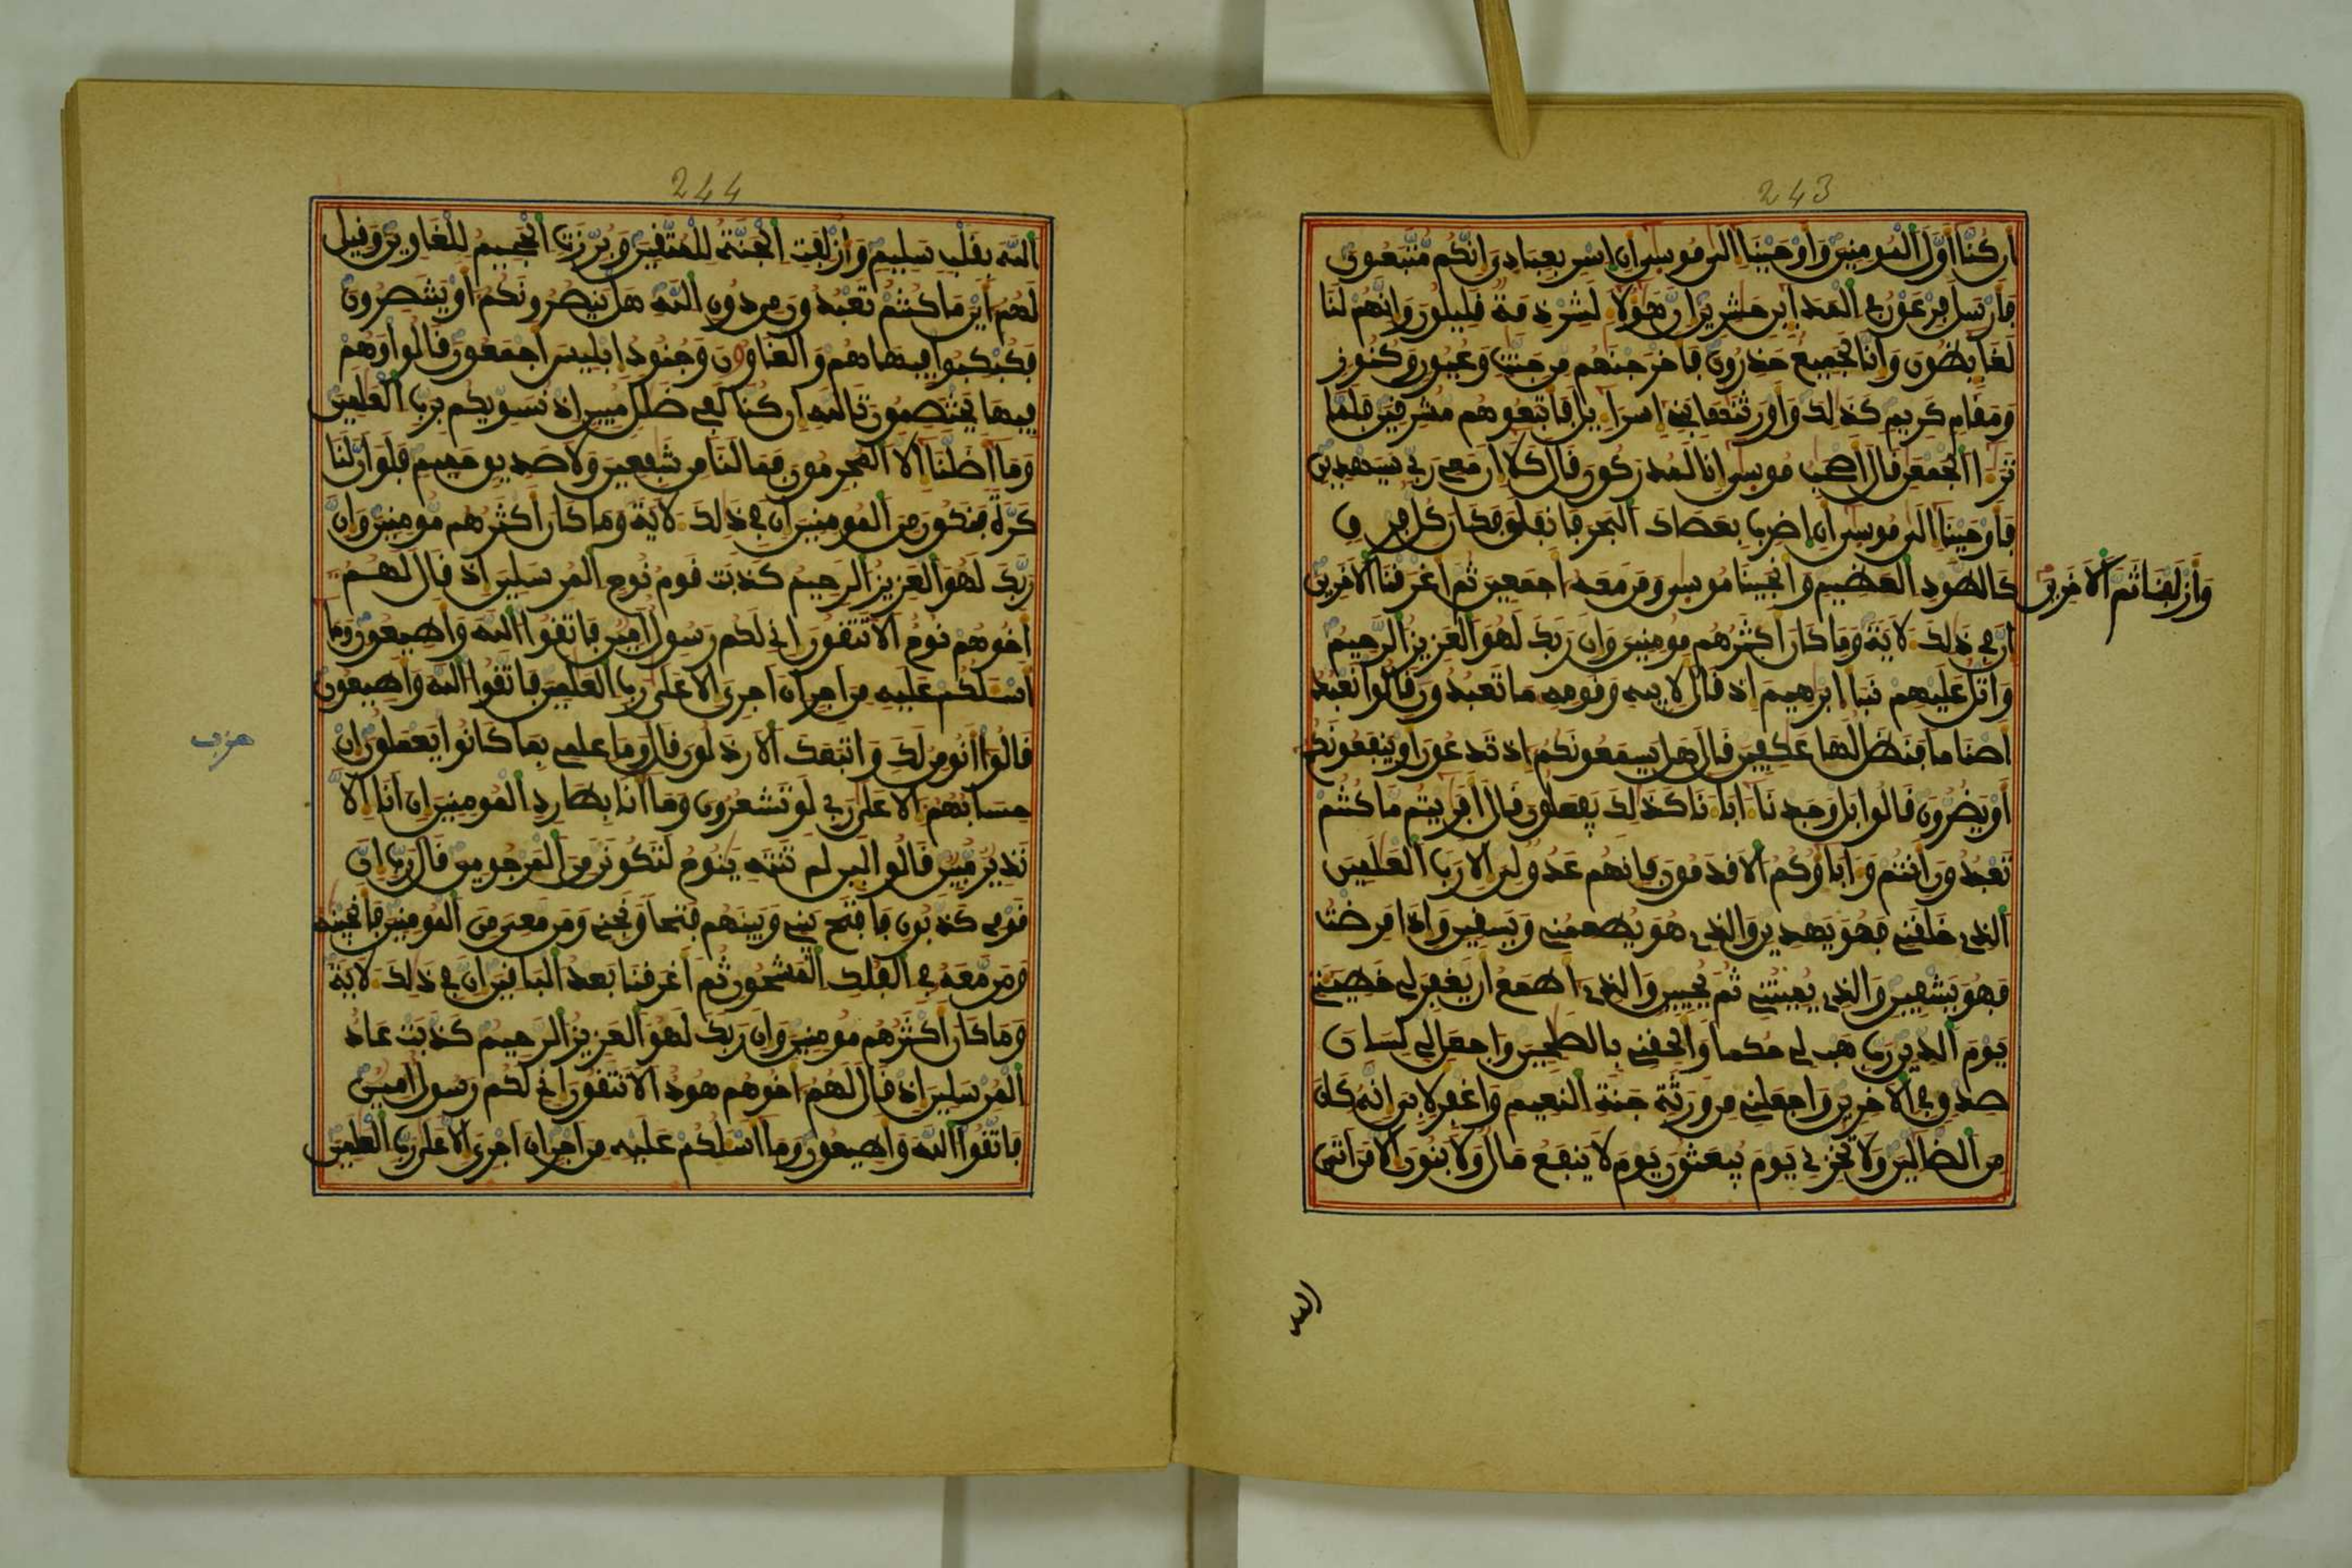 243
ان كنا اول المومنين واوحينا الى موسى ان اسر بعبادي انكم متبعون
فارسل فرعون في المداين حشرين ان هولاء لشرذمة قليلون وانهم لنا
لغايظون وانا لجميع حذرون فاخرجنهم من جنت وعيون وكنوز
ومقام كريم كذلك واورثنها بني اسراءيل فاتبعوهم مشرقين فلما
ترءا الجمعن قال اصحب موسى انا لمدركون قال كلا ان معي ربي سيهدين
فاوحينا الى موسى ان اضرب بعصاك البحر فانفلق فكان كل فرق
كالطود العظيم وانجينا موسى ومن معه اجمعين ثم اغرقنا الاخرين
وازلفنا ثم الاخرين
ان في ذلك لاية وما كان اكثرهم مومنين وان ربك لهو العزيز الرحيم
واتل عليهم نبا ابرهيم اذ قال لابيه وقومه ما تعبدون قالوا نعبد
اصناما فنظل لها عكفين قال هل يسمعونكم اذ تدعون او ينفعونكم
او يضرون قالوا بل وجدنا ءاباءنا كذلك يفعلون قال افريتم ما كنتم
تعبدون انتم وءاباوكم الاقدمون فانهم عدو لي الا رب العلمين
الذي خلقني فهو يهدين والذي هو يطعمني ويسقين واذا مرضت
فهو يشفين والذي يميتني ثم يحيين والذي اطمع ان يغفر لي خطيتي
يوم الدين رب هب لي حكما والحقني بالصلحين واجعل لي لسان
صدق في الاخرين واجعلني من ورثة جنة النعيم واغفر لابي انه كان
من الضالين ولا تخزني يوم يبعثون يوم لا ينفع مال ولا بنون الا من اتى
244
الله بقلب سليم وازلفت الجنة للمتقين وبرزت الجحيم للغاوين وقيل
لهم اين ما كنتم تعبدون من دون الله هل ينصرونكم او ينتصرون
فكبكبوا فيها هم والغاون وجنود ابليس اجمعون قالوا وهم
فيها يختصمون تالله ان كنا لفي ضلل مبين اذ نسويكم برب العلمين
وما اضلنا الا المجرمون فما لنا من شفعين ولا صديق حميم فلو ان لنا
كرة فنكون من المومنين ان في ذلك لاية وما كان اكثرهم مومنين وان
ربك لهو العزيز الرحيم كذبت قوم نوح المرسلين اذ قال لهم
اخوهم نوح الا تتقون اني لكم رسول امين فاتقوا الله واطيعون وما
اسلكم عليه من اجر ان اجري الا على رب العلمين فاتقوا الله واطيعون
حزب
قالوا انومن لك واتبعك الارذلون قال وما علمي بما كانوا يعملون ان
حسابهم الا على ربي لو تشعرون وما انا بطارد المومنين ان انا الا
نذير مبين قالوا لين لم تنته ينوح لتكونن من المرجومين قال رب ان
قومي كذبون فافتح بيني وبينهم فتحا ونجني ومن معي من المومنين فانجينه
ومن معه في الفلك المشحون ثم اغرقنا بعد الباقين ان في ذلك لاية
وما كان اكثرهم مومنين وان ربك لهو العزيز الرحيم كذبت عاد
المرسلين اذ قال لهم اخوهم هود الا تتقون اني لكم رسول امين
فاتقوا الله واطيعون وما اسلكم عليه من اجر ان اجري الا على رب العلمين